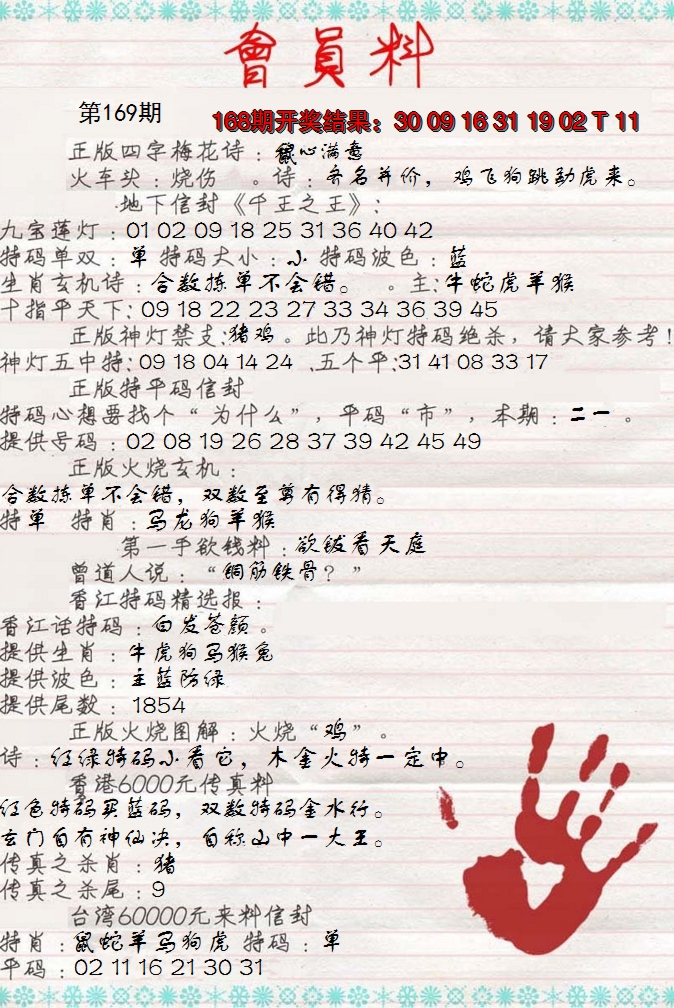 會員料
第169期
168期开奖结果：30 09 16 31 19 02 T 11
正版四字梅花诗：鼠心满意
火车头：烧伤 。诗：齐名并价，鸡飞狗跳劲虎来。
地下信封《千王之王》：
九宝莲灯：01 02 09 18 25 31 36 40 42
特码单双：单 特码大小：小 特码波色：蓝
生肖玄机诗：合数拣单不会错。 。主：牛蛇虎羊猴
十指平天下：09 18 22 23 27 33 34 36 39 45
正版神灯禁支：猪鸡。此乃神灯特码绝杀，请大家参考！
神灯五中特：09 18 04 14 24 .五个平：31 41 08 33 17
正版特平码信封
特码心想要找个“为什么”，平码“市”，本期：二一 。
提供号码：02 08 19 26 28 37 39 42 45 49
正版火烧玄机：
合数拣单不会错，双数至尊有得猜。
特单 特肖：马龙狗羊猴
第一手欲钱料：欲钱看天庭
曾道人说：“铜筋铁骨？”
香江特码精选报：
香江话特码：白发苍颜。
提供生肖：牛虎狗马猴兔
提供波色：主蓝防绿
提供尾数：1854
正版火烧图解：火烧“鸡”。
诗：红绿特码小看它，木金火特一定中。
香港6000元传真料
红色特码买蓝码，双数特码金水行。
玄门自有神仙决，自称山中一大王。
传真之杀肖：猪
传真之杀尾：9
台湾60000元来料信封
特肖：鼠蛇羊马狗虎 特码：单
平码：02 11 16 21 30 31